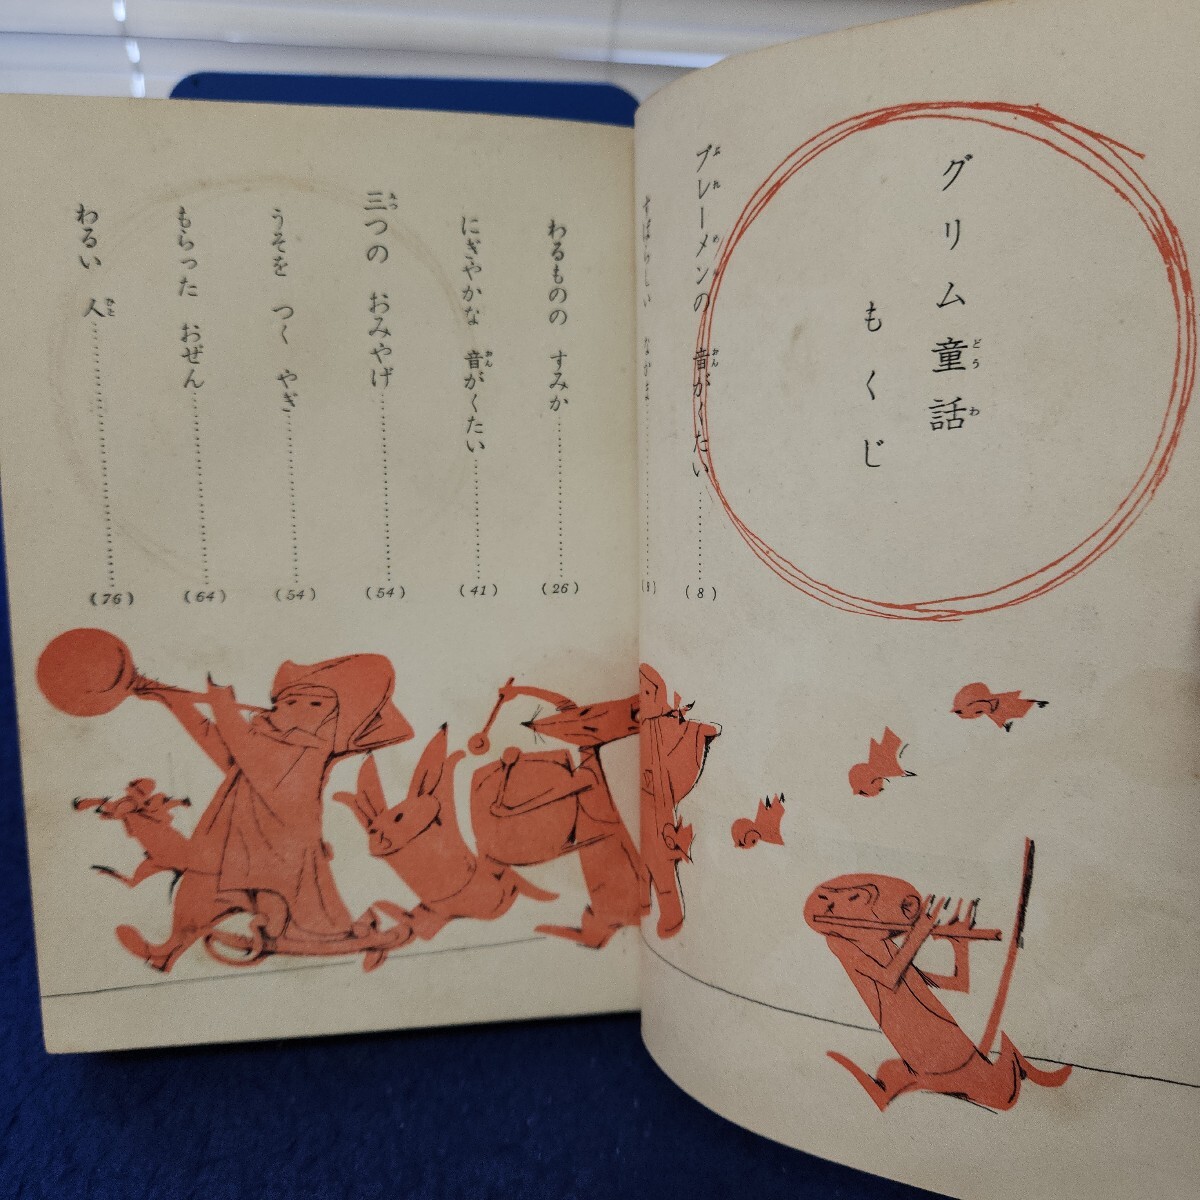 グリム童話
どうわ
もくじ
ブレーメンの 音がくたい……(8)
おん
すばらしい なかま……
わるものの すみか……(26)
にぎやかな 音がくたい……(41)
おん
三つの おみやげ……(54)
みっ
うそを つく やぎ……(54)
もらった おぜん……(64)
わるい 人……(76)
ひと